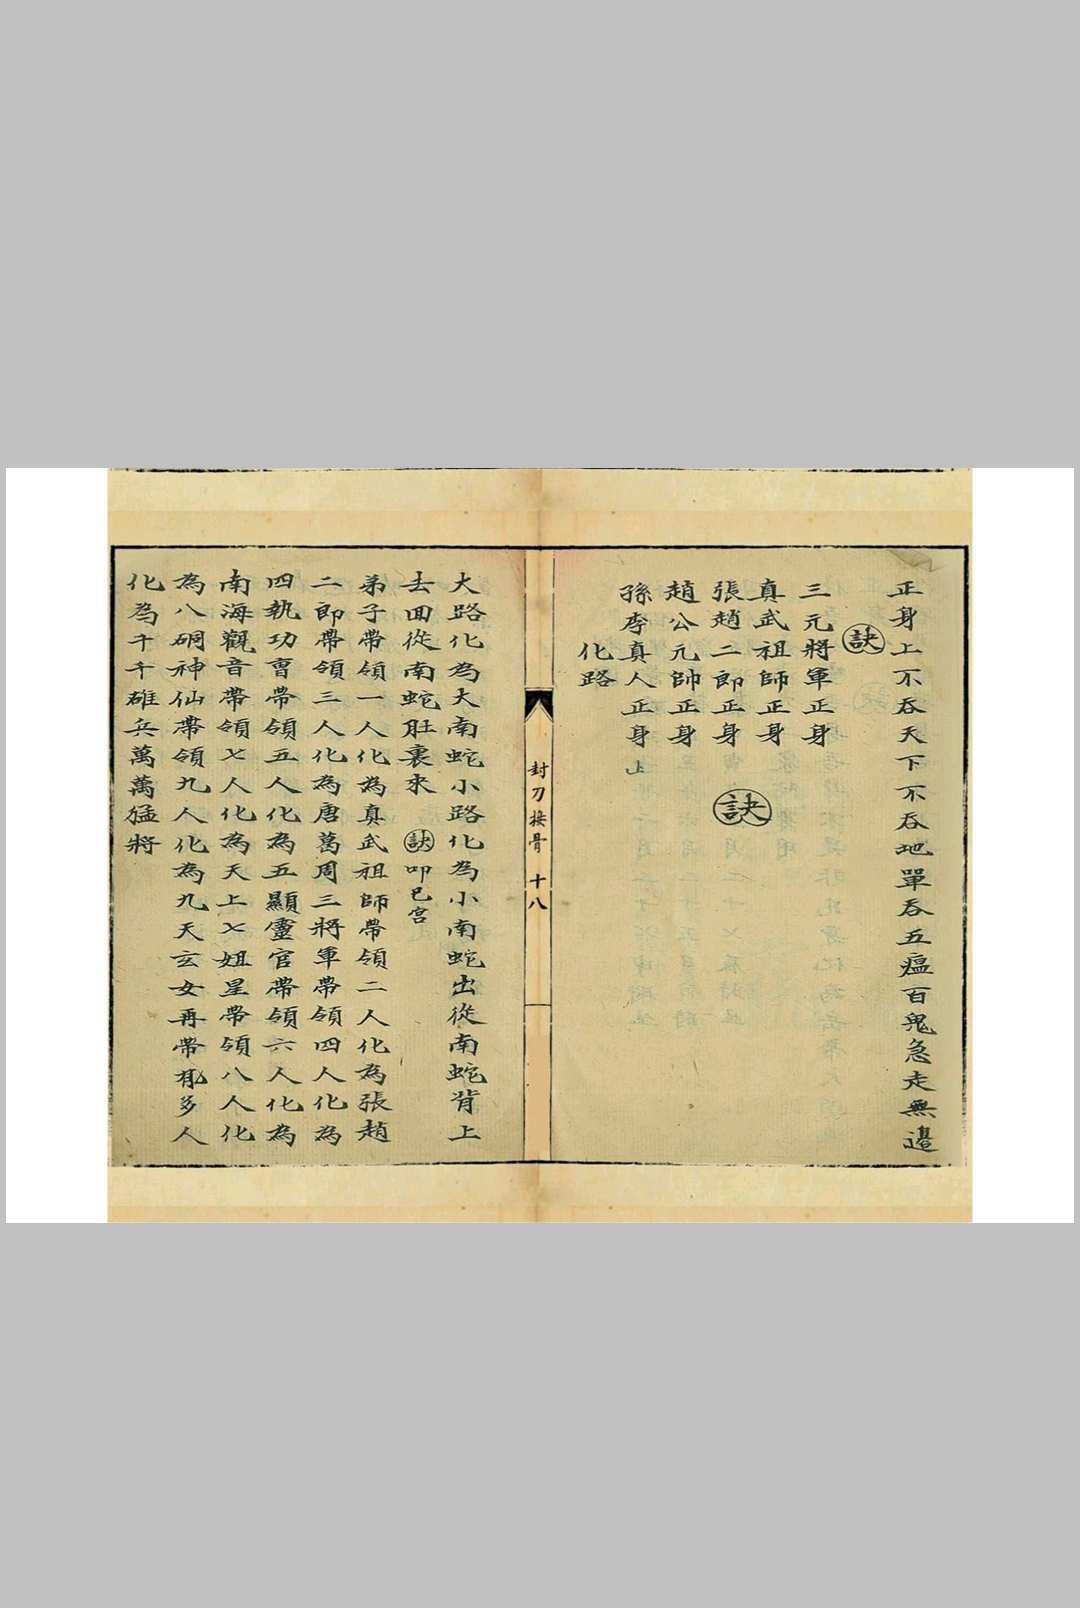 正身上不吞天下不吞地單吞五瘟百鬼急走無邊
訣
三元將軍正身
真武祖師正身
張趙二郎正身 訣
趙公元帥正身
孫李真人正身上
化路
封刀接骨 十八
大路化為大南蛇小路化為小南蛇出從南蛇背上
去回從南蛇肚裏來 訣 叩巳宮
弟子帶領一人化為真武祖師帶領二人化為張趙
二郎帶領三人化為唐葛周三將軍帶領四人化為
四執功曹帶領五人化為五顯靈官帶領六人化為
南海觀音帶領七人化為天上七姐星帶領八人化
為八硐神仙帶領九人化為九天玄女再帶有多人
化為千千雄兵萬萬猛將